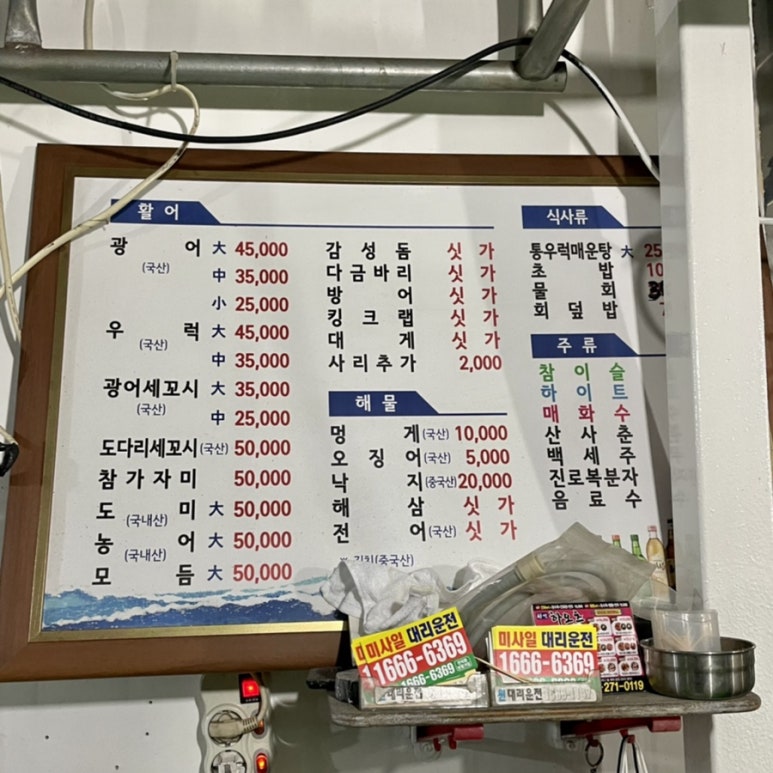 활 어
광 어 大 45,000
(국산) 中 35,000
小 25,000
우 럭 大 45,000
(국산) 中 35,000
광어세꼬시 大 35,000
(국산) 中 25,000
도다리세꼬시(국산) 50,000
참 가 자 미 50,000
도 (국내산) 미 大 50,000
농 (국내산) 어 大 50,000
모 듬 大 50,000
감 성 돔 싯 가
다 금 바 리 싯 가
방 어 싯 가
킹 크 랩 싯 가
대 게 싯 가
사 리 추 가 2,000
해 물
멍 게(국산) 10,000
오 징 어(국산) 5,000
낙 지(중국산) 20,000
해 삼 싯 가
전 어(국산) 싯 가
※ 김치(중국산)
식사류
통우럭매운탕 大 25
초 밥 10
물 회
회 덮 밥 7
주 류
참 이 슬
하 이 트
매 화 수
산 사 춘
백 세 주
진로복분자
음 료 수
미사일 대리운전
1666-6369
1666-6369
대리운전
미사일 대리운전
1666-6369
대리운전
271-0119